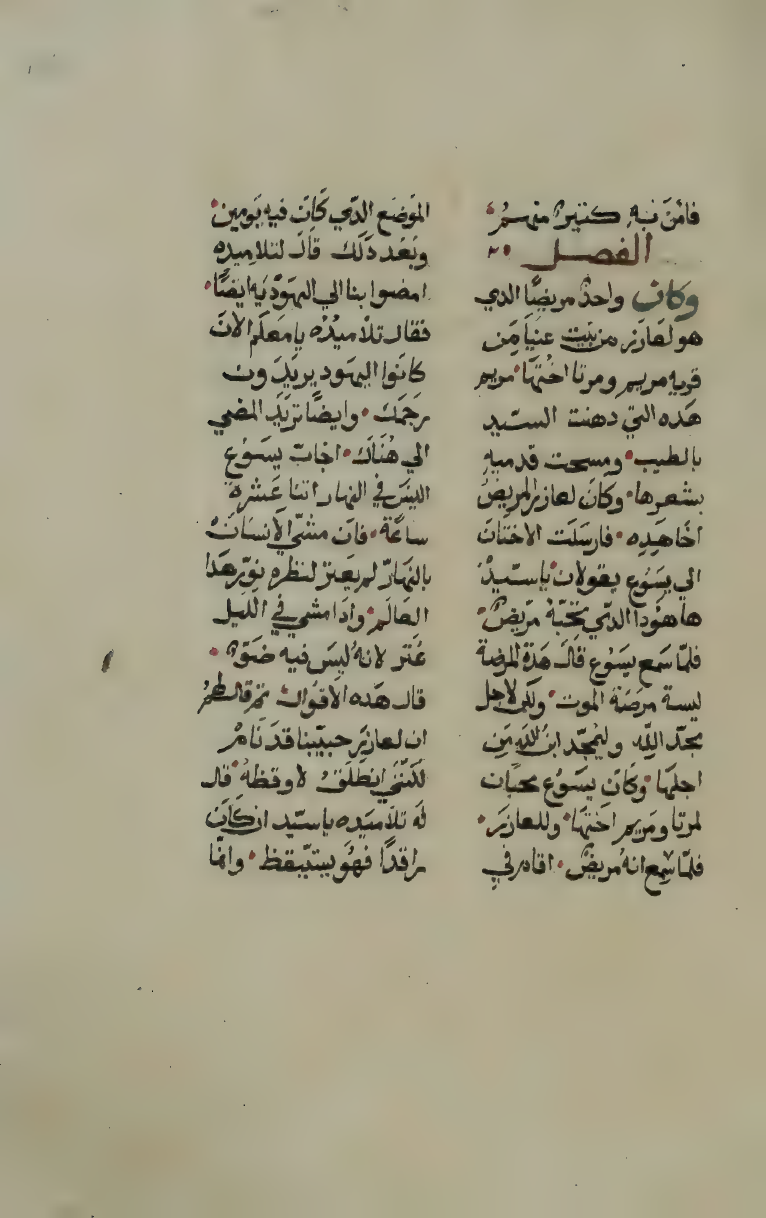 فامَنَ بهِ كتيرٌ منهمُ
الفصل ٢٥
وكان واحدٌ مريضًا الدي
هو لعازر من بيت عنيا مِن
قريه مريم ومرتا اختهَا مريم
هَده التي دهنت السيّد
بالطيب ومسحت قدميهِ
بشعرها وكانَ لعازر المريضُ
اخَا هَدِه فارسَلَت الاختان
الي يسَوُع يقولان ياسيّدُ
هاهُودا الدّي تحبّهُ مَريضٌ
فلمّا سَمِع يسَوُع قالَ هَدهِ المرضة
ليسة مرضَة الموت ولكن لاجل
مجدّ اللّه وليُمجّد ابنُ اللّه مِن
اجلهَا وكانَ يسَوُع محبًا
لمرتا ومَريم اختهَا وللعازر
فلمّا سَمِع انهُ مريضٌ اقام في
الموَضع الدّي كانَ فيه يَومين
وبَعَد دَلَك قالَ لتلاميده
امضوا بنا الي اليهَودّيه ايضًا
فقال تلاميدُه يا معَلم الانَ
كانوا اليهَود يريدَون
رَجمَك وايضًا تريَد المضي
الي هُنَاك اجابَ يسَوُع
اليسَ في النهار اتنا عَشرة
ساعَة فان مشيَ الانسانُ
بالنهَارّ لم يعَتر لنظره نورَ هَدا
العَالم وادا مشي في الليل
عُتر لانهُ ليسَ فيه ضَوٌ
قال هَده الاقوال تم قال لهمُ
ان لعازر حبيبنا قدَ نَامَ
لكنّني انطلقُ لاوقظهُ قال
لهُ تلاميَده ياسيّد ان كانَ
راقدًا فهُوَ يستيقظ وانمّا